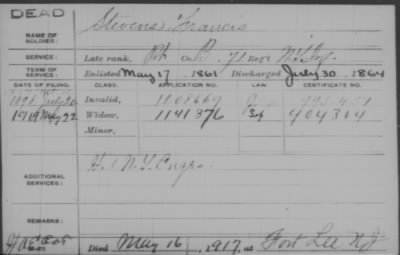 DEAD
Stevens, Francis
NAME OF
SOLDIER:
SERVICE:
Late rank, Co. 71 Reg't N.Y. Inf.
TERM OF
SERVICE:
Enlisted May 17, 1861 Discharged July 30, 1864
DATE OF FILING. CLASS. APPLICATION NO. LAW. CERTIFICATE NO.
July Invalid,
May 22 Widow, 1141876 404314
Minor,
ADDITIONAL
SERVICES:
H. 1 N.Y. Engrs.
REMARKS:
Died May 16, 1917, at Fort Lee N.J.